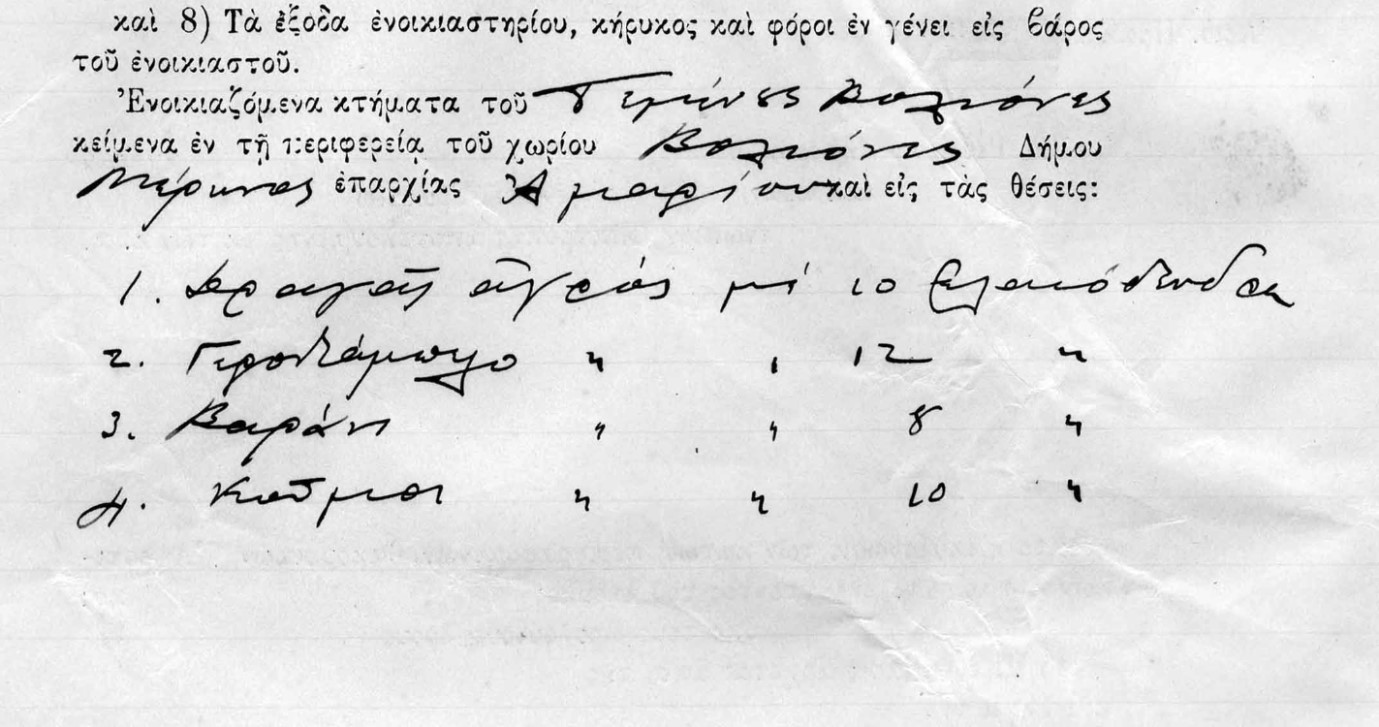 καὶ 8) Τὰ ἔξοδα ἐνοικιαστηρίου, κήρυκος καὶ φόροι ἐν γένει εἰς βάρος
τοῦ ἐνοικιαστοῦ.
Ἐνοικιαζόμενα κτήματα τοῦ Τεμένους Βολιόνες
κείμενα ἐν τῇ περιφερείᾳ τοῦ χωρίου Βολιόνες Δήμου
Μέρωνας ἐπαρχίας Ἀμαρίου καὶ εἰς τὰς θέσεις:
1. ἀγρός μέ 10 ἐλαιόδενδρα
2. " " 12 "
3. Βαράνι " " 8 "
4. " " 10 "